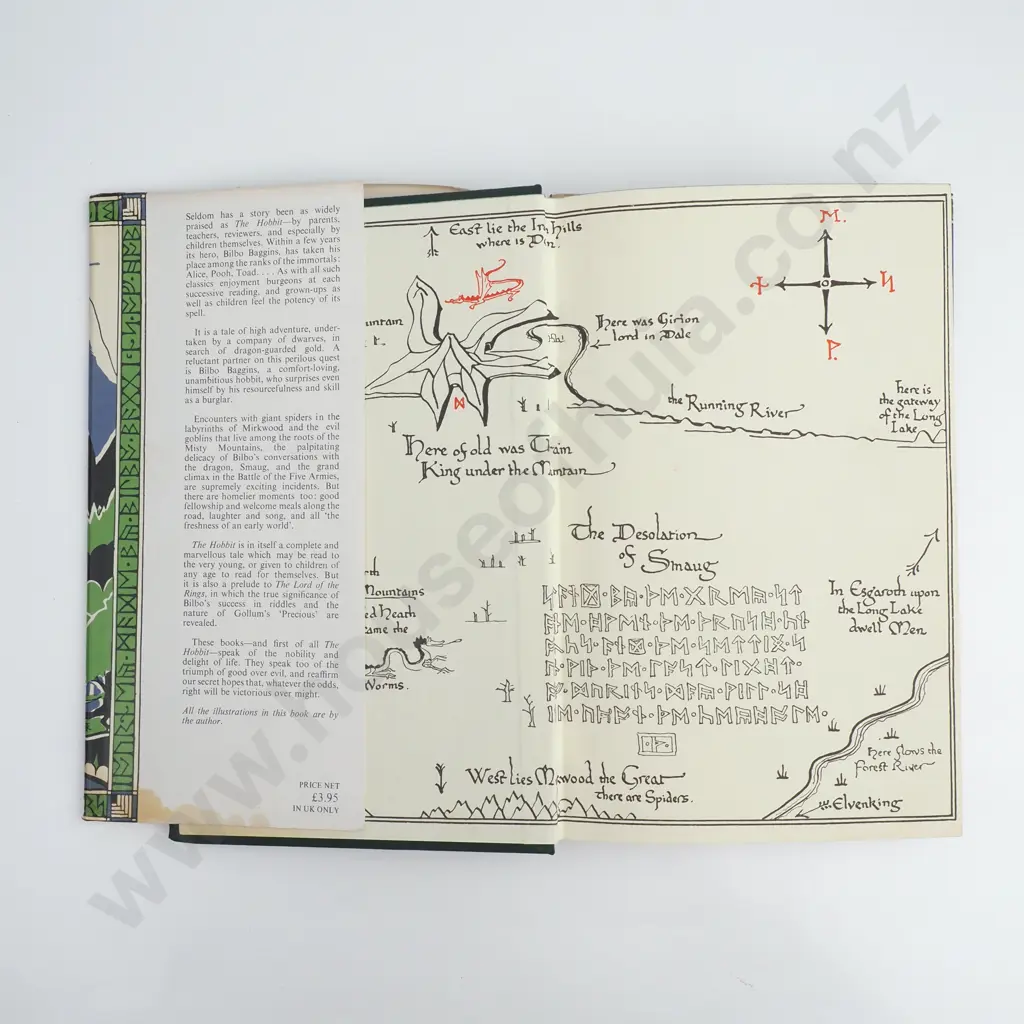 Seldom has a story been as widely
praised as The Hobbit—by parents,
teachers, reviewers, and especially by
children themselves. Within a few years
its hero, Bilbo Baggins, has taken his
place among the ranks of the immortals:
Alice, Pooh, Toad. . . . As with all such
classics enjoyment burgeons at each
successive reading, and grown-ups as
well as children feel the potency of its
spell.
It is a tale of high adventure, under-
taken by a company of dwarves, in
search of dragon-guarded gold. A
reluctant partner on this perilous quest
is Bilbo Baggins, a comfort-loving,
unambitious hobbit, who surprises even
himself by his resourcefulness and skill
as a burglar.
Encounters with giant spiders in the
labyrinths of Mirkwood and the evil
goblins that live among the roots of the
Misty Mountains, the palpitating
delicacy of Bilbo's conversations with
the dragon, Smaug, and the grand
climax in the Battle of the Five Armies,
are supremely exciting incidents. But
there are homelier moments too: good
fellowship and welcome meals along the
road, laughter and song, and all 'the
freshness of an early world'.
The Hobbit is in itself a complete and
marvellous tale which may be read to
the very young, or given to children of
any age to read for themselves. But
it is also a prelude to The Lord of the
Rings, in which the true significance of
Bilbo's success in riddles and the
nature of Gollum's 'Precious' are
revealed.
These books—and first of all The
Hobbit—speak of the nobility and
delight of life. They speak too of the
triumph of good over evil, and reaffirm
our secret hopes that, whatever the odds,
right will be victorious over might.
All the illustrations in this book are by
the author.
PRICE NET
£3.95
IN UK ONLY
East lie the Ir n Hills
where is D in.
untain
Here of old was T rain
King under the M untain
Mountains
ed Heath
ame the
Worms.
West lies M wood the Great
there are Spiders.
Here was Girion
lord in Dale
the Running River
here is
the gateway
of the Long
Lake
The Desolation
of Smaug
ᛋᛏᚪᚾᛞ᛫ᛒᚣ᛫ᚦᛖ᛫ᚷᚱᛖᚣ᛫ᛋᛏ
ᚩᚾᛖ᛫ᚻᚹᛖᚾ᛫ᚦᛖ᛫ᚦᚱᚢᛋᚻ᛫ᚳᚾ
ᚩᚳᛋ᛫ᚪᚾᛞ᛫ᚦᛖ᛫ᛋᛖᛏᛏᛁᛝ᛫ᛋ
ᚢᚾ᛫ᚹᛁᚦ᛫ᚦᛖ᛫ᛚᚪᛋᛏ᛫ᛚᛁᚷᚻᛏ᛫
ᚩᚠ᛫ᛞᚢᚱᛁᚾᛋ᛫ᛞᚪᚣ᛫ᚹᛁᛚᛚ᛫ᛋᚻ
ᛁᚾᛖ᛫ᚢᛈᚩᚾ᛫ᚦᛖ᛫ᚳᛖᚣᚻᚩᛚᛖ᛫
In Esgaroth upon
the Long Lake
dwell Men
Here flows the
Forest River
Elvenking
www.houseofhuia.co.nz